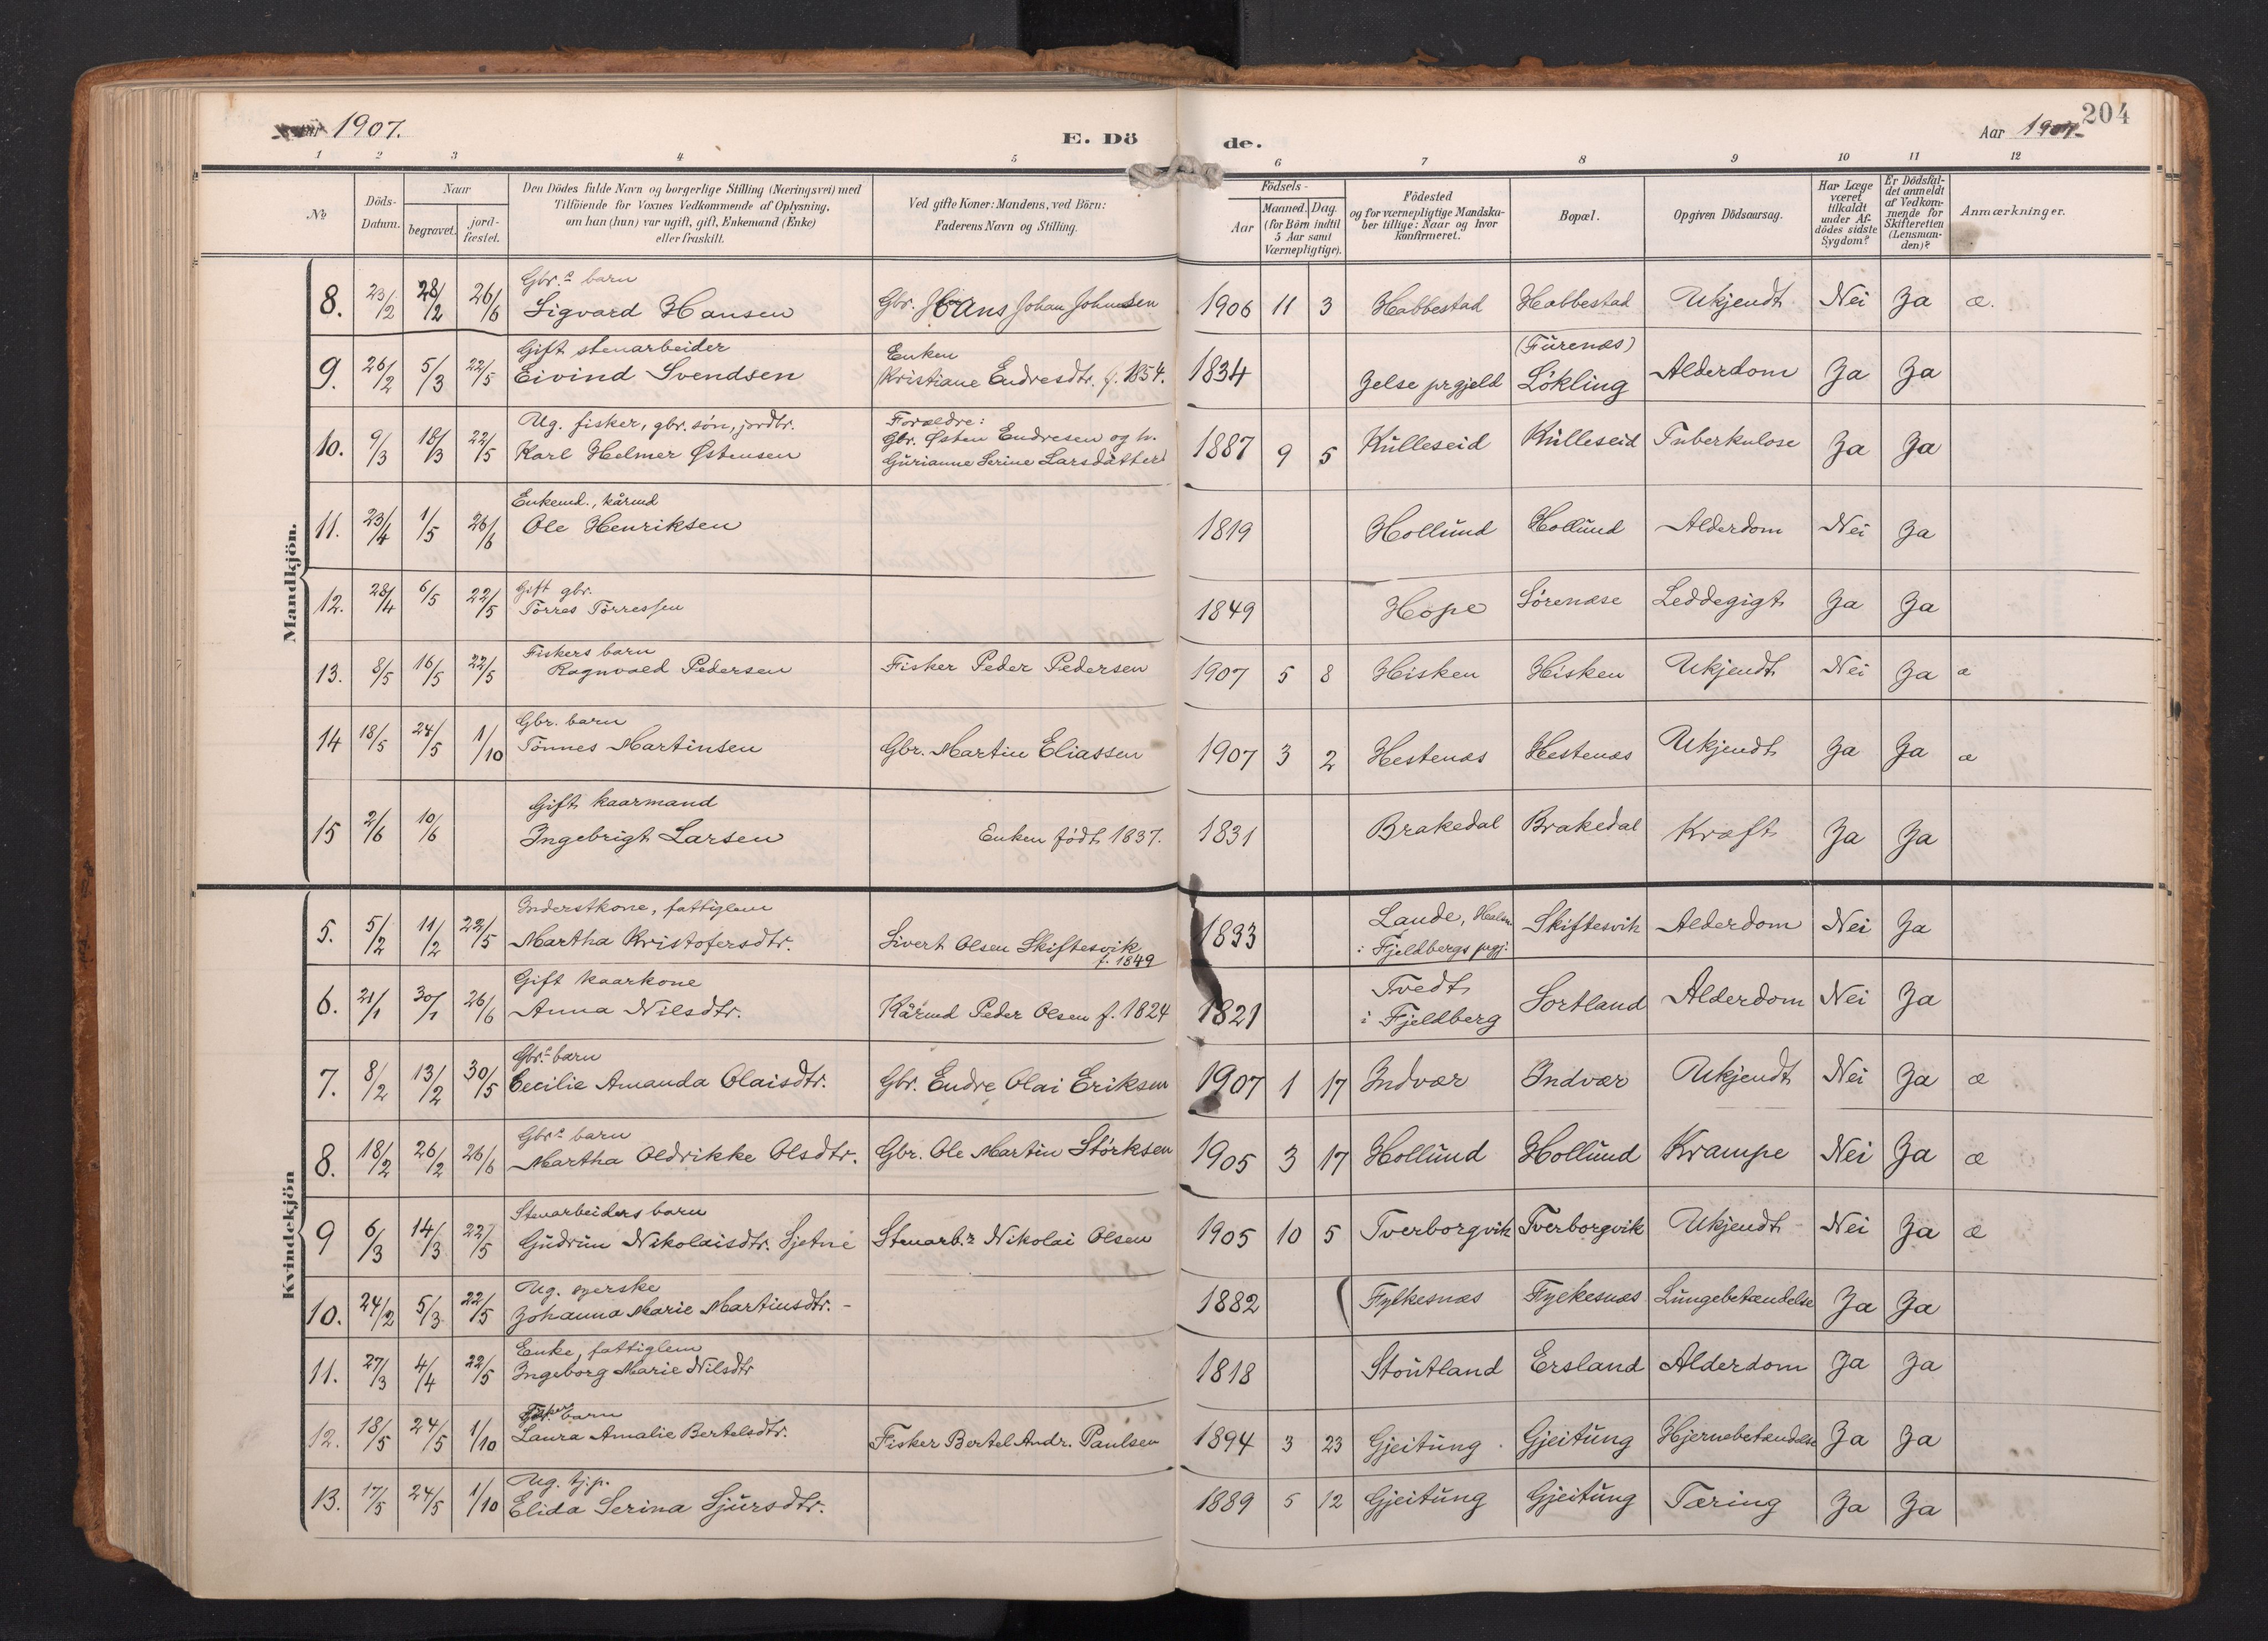 Aar 1907.
E. Dö
de.
Aar 1907.
204
1 2 3 4 5 6 7 8 9 10 11 12
№
Döds-Datum.
Naar
begravet.
jord-fæstet.
Den Dödes fulde Navn og borgerlige Stilling (Næringsvei) med
Tilföiende for Voxnes Vedkommende af Oplysning,
om han (hun) var ugift, gift, Enkemand (Enke)
eller fraskilt.
Ved gifte Koner: Mandens, ved Börn:
Faderens Navn og Stilling.
Födsels-
Aar
Maaned. Dag.
(for Börn indtil
5 Aar samt
Værnepligtige).
Födested
og for værnepligtige Mandska-
ber tillige: Naar og hvor
konfirmeret.
Bopæl.
Opgiven Dödsaarsag.
Har Læge
været
tilkaldt
under Af-
dödes sidste
Sygdom?
Er Dödsfal-
det anmeldt
af Vedkom-
mende for
Skifteretten
(Lensman-
den)?
Anmærkninger.
Mandkjön.
Gbr.s barn
8. 23/2 28/2 26/6 Sigvard Hansen Gbr. Hans Johan Johnsen 1906 11 3 Habbestad Habbestad Ukjendt Nei Ja æ.
Gift stenarbeider Enken (Fürenæs)
9. 26/2 5/3 22/5 Eivind Svendsen Kristiane Endresdtr. f. 1854. 1834 Jelse prgjeld Lökling Alderdom Ja Ja
Ug. fisker, gbr. sön, jordbr. Forældre:
10. 9/3 18/3 22/5 Karl Helmer Østensen Gbr. Østen Endresen og h. 1887 9 5 Külleseid Külleseid Tuberkulose Ja Ja
Gürianne Serine Larsdatter
Enkemd., kårmd
11. 23/4 1/5 26/6 Ole Henriksen 1819 Hollünd Hollünd Alderdom Nei Ja
Gift gbr.
12. 28/4 6/5 22/5 Törres Törressen 1849 Hope Sörenæse Leddegigt Ja Ja
Fiskers barn
13. 8/5 16/5 22/5 Ragnvald Pedersen Fisker Peder Pedersen 1907 5 8 Hisken Hisken Ukjendt Nei Ja æ
Gbr. barn
14 18/5 24/5 1/10 Tönnes Martinsen Gbr. Martin Eliassen 1907 3 2 Hestenæs Hestenæs Ukjendt Ja Ja æ
Gift kaarmand
15 2/6 10/6 Ingebrigt Larsen Enken födt 1837. 1831 Brakedal Brakedal Kræft Ja Ja
Kvindekjön
Inderstkone, fattiglem
5. 5/2 11/2 22/5 Martha Kristofersdtr. Sivert Olsen Skiftesvik f. 1849 1833 Lande, i Fjeldbergs prgj. Skiftesvik Alderdom Nei Ja
Gift kaarkone
6. 21/1 30/1 26/6 Anna Nilsdtr. Kårmd Peder Olsen f. 1824 1821 Tvedt i Fjeldberg Sortland Alderdom Nei Ja
Gbr.s barn
7. 8/2 13/2 30/5 Cecilie Amanda Olaisdtr. Gbr. Endre Olai Eriksen 1907 1 17 Indvær Indvær Ukjendt Nei Ja æ
Gbr.s barn
8. 18/2 26/2 26/6 Martha Oldrikke Olsdtr. Gbr. Ole Martin Störksen 1905 3 17 Hollünd Hollünd Krampe Nei Ja æ
Stenarbeiders barn
9 6/3 14/3 22/5 Güdrün Nikolaisdtr. Sjetne Stenarb.r Nikolai Olsen 1905 10 5 Tverborgvik Tverborgvik Ukjendt Nei Ja æ
Ug. syerske
10. 24/2 5/3 22/5 Johanna Marie Martinsdtr. - 1882 Fylkesnæs Fylkesnæs Lüngebetændelse Ja Ja
Enke, fattiglem
11. 27/3 4/4 22/5 Ingeborg Marie Nilsdtr 1818 Stoütland Ersland Alderdom Ja Ja
Fiskers barn
12. 18/5 24/5 1/10 Laura Amalie Bertelsdtr. Fisker Bertel Andr. Paulsen 1894 3 23 Gjeitüng Gjeitüng Hjernebetændelse Ja Ja
Ug. tj.p.
13. 17/5 24/5 1/10 Elida Serina Sjürsdtr. 1889 5 12 Gjeitüng Gjeitüng Tæring Ja Ja